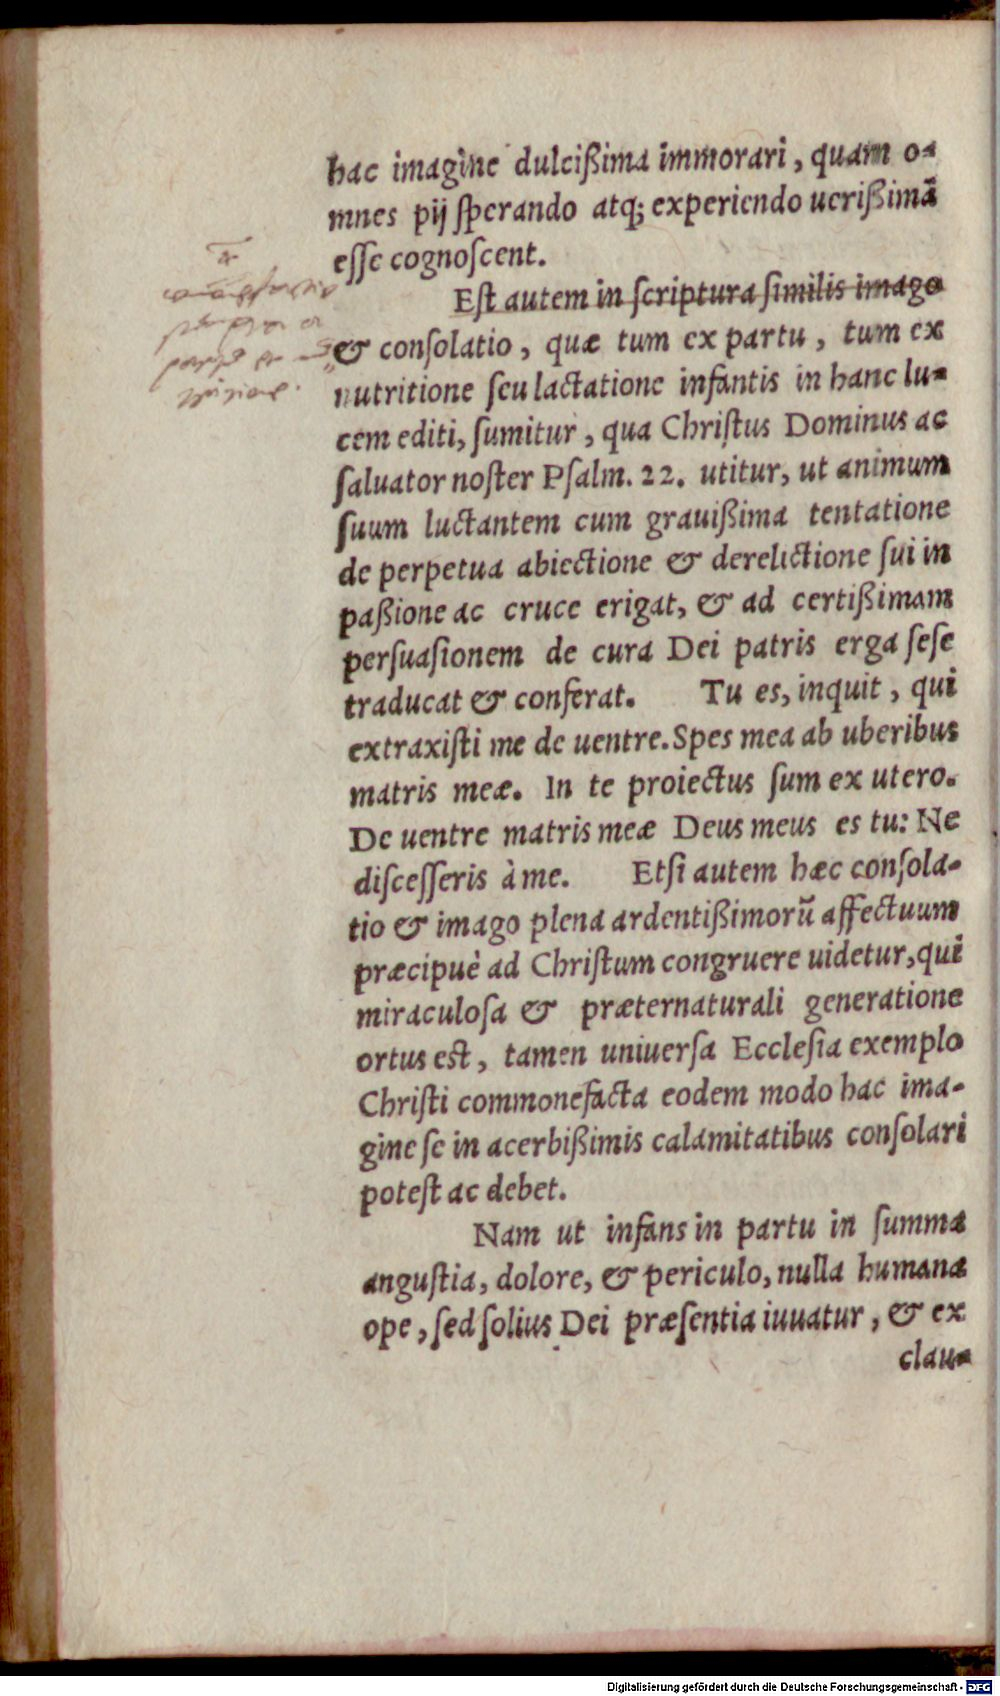 hac imagine dulcißima immorari, quam o-
mnes pij ſperando atq; experiendo uerißimã
eſſe cognoſcent.
Eſt autem in ſcriptura ſimilis imago
& conſolatio, quæ tum ex partu, tum ex
nutritione ſeu lactatione infantis in hanc lu-
cem editi, ſumitur, qua Chriſtus Dominus ac
ſaluator noſter Pſalm. 22. utitur, ut animum
ſuum luctantem cum grauißima tentatione
de perpetua abiectione & derelictione ſui in
paßione ac cruce erigat, & ad certißimam
perſuaſionem de cura Dei patris erga ſeſe
traducat & conferat. Tu es, inquit, qui
extraxiſti me de uentre. Spes mea ab uberibus
matris meæ. In te proiectus ſum ex utero.
De uentre matris meæ Deus meus es tu: Ne
diſceſſeris à me. Etſi autem hæc conſola-
tio & imago plena ardentißimorũ affectuum
præcipuè ad Chriſtum congruere uidetur, qui
miraculoſa & præternaturali generatione
ortus est, tamen uniuerſa Eccleſia exemplo
Chriſti commonefacta eodem modo hac ima-
gine ſe in acerbißimis calamitatibus conſolari
poteſt ac debet.
Nam ut infans in partu in ſumma
anguſtia, dolore, & periculo, nulla humana
ope, ſed ſolius Dei præſentia iuuatur, & ex
clau-
Digitalisierung gefördert durch die Deutsche Forschungsgemeinschaft - DFG